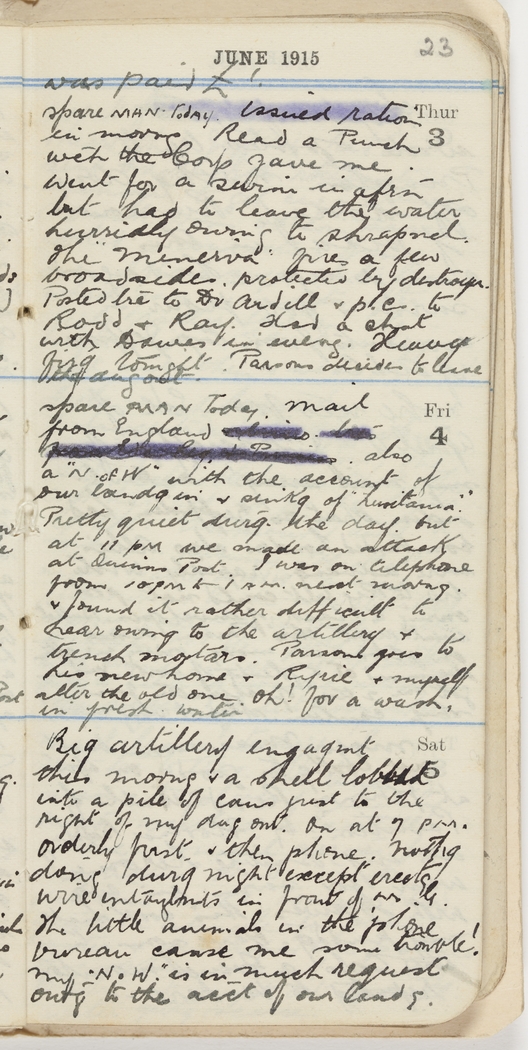 23
JUNE 1915
was paid £1!
Thur
3
spare MAN Today. Issued ration
in morng. Read a Punch
wch the Corp gave me.
Went for a swim in aftn
but had to leave the water
hurridly owing to shrapnel.
The "Minerva" fires a few
broadsides. protected by destroyer.
Posted lre to Dr Ardill & p.c. to
Rodd & Ray. Had a chat
with Dawes in eveng. Heavy
firg tonight. Parsons decides to leave
Fri
4
spare MAN Today. Mail
from England
also
a "N. of W" with the account of
our landg in & sinkg of "Lusitania."
Pretty quiet durg the day but
at 11 PM we made an attack
at Quinns Post. I was on telephone
from 10 PM to 1 A.M. next morng.
& found it rather difficult to
hear owing to the artillery &
trench mortars. Parsons goes to
his new home & & myself
alter the old one Oh! for a wash,
in fresh water
Sat
5
Big artillery engagmt
this morng & a shell lobbed
into a pile of cans just to the
right of my dug out. On at 7 P.M.
orderly first & then phone. Nothg
doing durg night except erectg
wire entaglmts in front of
The little animals in the phone
bureau cause me some trouble!
My "N. o W." is in much request
owg to the acct of our landg.